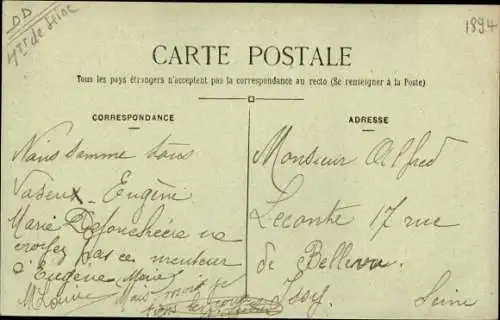 DD
de Seine
1894
CARTE POSTALE
Tous les pays étrangers n'acceptent pas la correspondance au recto (Se renseigner à la Poste)
CORRESPONDANCE
ADRESSE
Nous somme tous
Vaseux Eugène
Marie ne
croyez pas ce menteur
d'Eugène Marie
M Louise Mais moi je
Monsieur Alfred
Leconte 17 rue
de Bellevue
Issy Seine